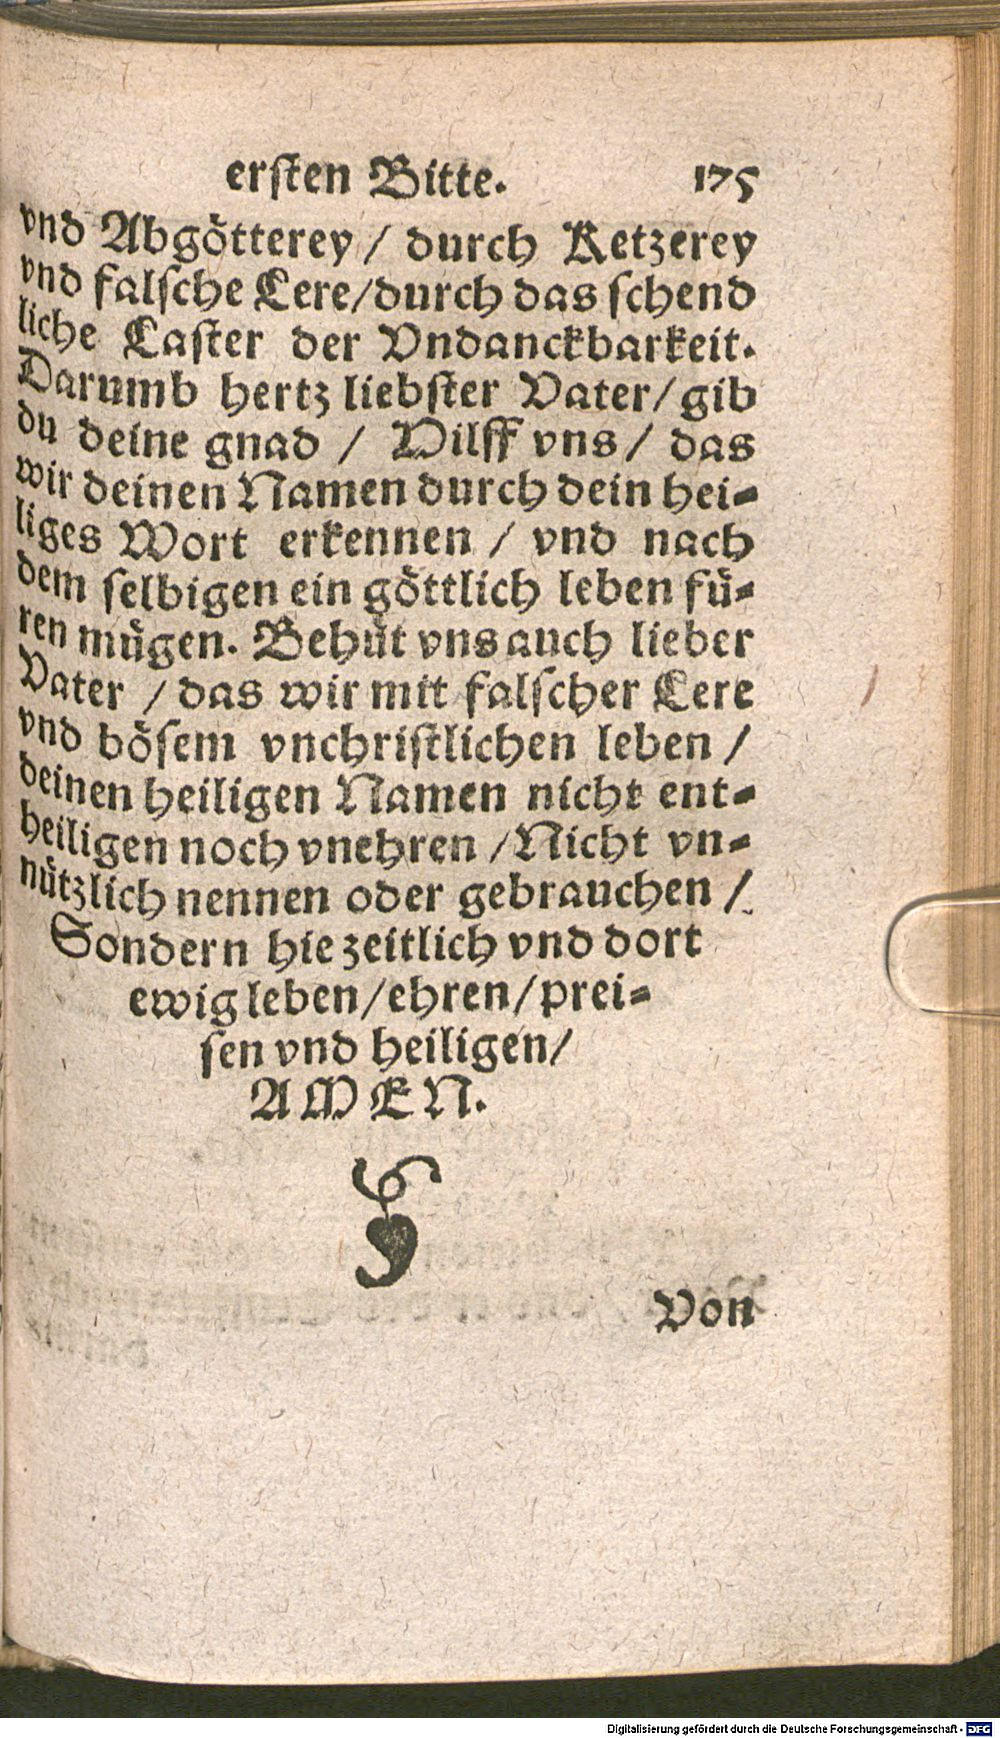 ersten Bitte. 175
vnd Abgötterey / durch Ketzerey
vnd falsche Lere/durch das schend
liche Laster der Vndanckbarkeit.
Darumb hertz liebster Vater/ gib
du deine gnad / Vilff vns / das
wir deinen Namen durch dein hei-
liges Wort erkennen / vnd nach
dem selbigen ein göttlich leben fü-
ren mügen. Behüt vns auch lieber
Vater / das wir mit falscher Lere
vnd bösem vnchristlichen leben /
deinen heiligen Namen nicht ent-
heiligen noch vnehren /Nicht vn-
nützlich nennen oder gebrauchen /
Sondern hie zeitlich vnd dort
ewig leben/ehren/prei-
sen vnd heiligen/
AMEN.
Von
Digitalisierung gefördert durch die Deutsche Forschungsgemeinschaft - DFG